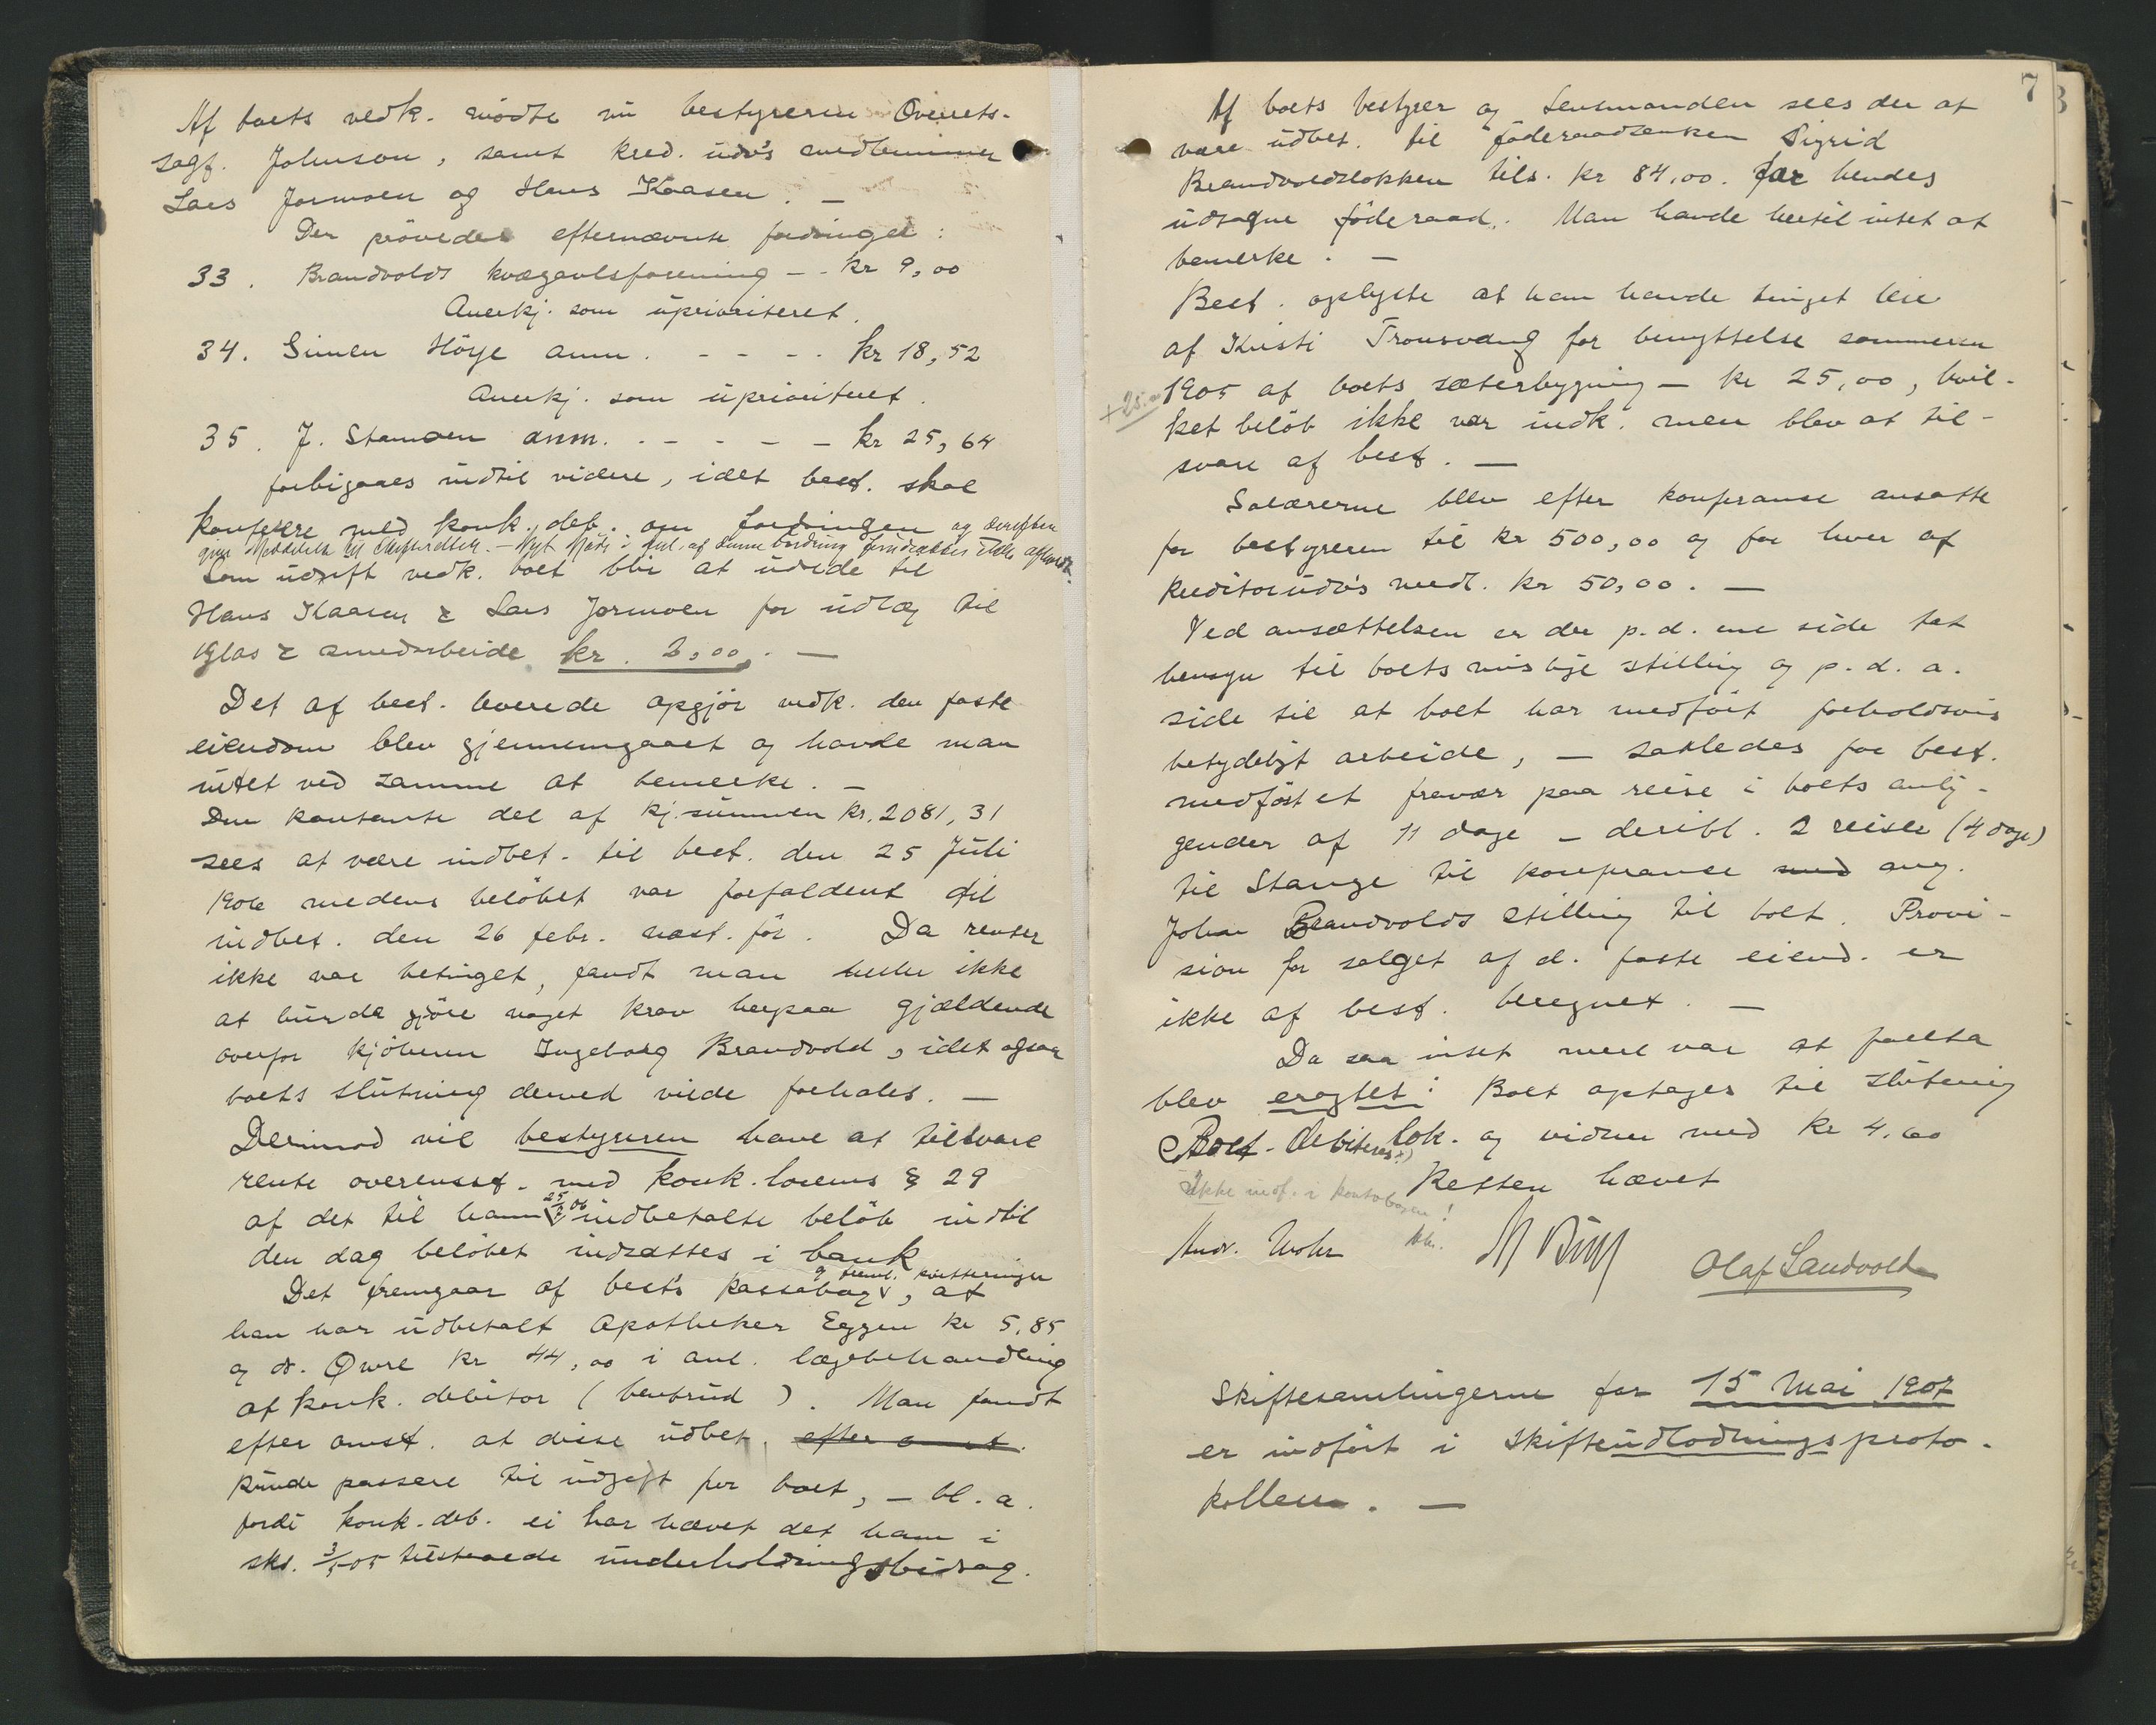 Af boets vedk. mödte nu bestyreren Overrets-
sagf. Johnson, samt kred. udv's medlemmer
Lars Jormoen og Hans Kaasen. —
Der prövedes efternævnte fordringer:
33. Brandvolds kvægavlsforening - - kr 9,00
Anerkj. som uprioriteret.
34. Simen Höye anm. - - - - kr 18,52
Anerkj. som uprioriteret.
35. J. Stamoen anm. - - - - - kr 25,64
forbigaaes indtil videre, idet best. skal
konferere med konk. deb. om fordringen og derefter
give Meddelelse til Skifteretten. — Nyt Möde i anl. af denne fordring forudsættes ikke afholdt.
Som udgift vedk. boet blir at udrede til
Hans Kaasen & Lars Jormoen for udlæg til
Glas & smedarbeide kr. 2,00. —
Det af best. leverede opgjör vedk. den faste
eiendom blev gjennemgaaet og havde man
intet ved samme at bemerke. —
Den kontante del af kj.summen kr. 2081,31
sees at være indbet. til best. den 25 Juli
1906 medens belöbet var forfaldent til
indbet. den 26 febr. næst. för. Da renter
ikke var betinget, fandt man heller ikke
at burde gjöre noget krav herpaa gjældende
overfor kjöberen Ingeborg Brandvold, idet ogsaa
boets slutning derved vilde forhales. —
Derimod vil bestyreren have at tilsvare
rente overensst. med konk.lovens § 29
af det til ham 25/7 06 indbetalte belöb indtil
den dag belöbet indsættes i bank
Det fremgaar af best's kassabog og freml. kvitteringer, at
han har udbetalt Apotheker Eggen kr 5,85
og dr. Øvre kr 44,00 i anl. lægebehandling
af konk. debitor (benbrud). Man fandt
efter omst. at disse udbet. efter omst.
kunde passere til udgift for boet, — bl. a.
fordi konk. deb. ei har hævet det ham i
sks. 3/5 05 tilstaaede underholdningsbidrag.
7
Af boets bestyrer og Lensmanden sees der at
være udbet. til föderaadsenken Sigrid
Brandvoldslökken tils. kr 84,00. for hendes
udsagne föderaad. Man havde hertil intet at
bemerke. —
Best. oplyste at han havde tinget leie
af Kristi Tronsvang for benyttelse sommeren
+25.00
1905 af boets sæterbygning — kr 25,00, hvil-
ket belöb ikke var indk. men blev at til-
svare af best. —
Salærerne blev efter konferanse ansatte
for bestyreren til kr 500,00 og for hver af
kreditorudv's medl. kr 50,00. —
Ved ansættelsen er der p. d. ene side tat
hensyn til boets mislige stilling og p. d. a.
side til at boet har medfört forholdsvis
betydeligt arbeide, — saaledes for best.
medfört et fravær paa reise i boets anlig-
gender af 11 dage — deribl. 2 reiser (4 dage)
til Stange til konferanse med ang.
Johan Brandvolds stilling til boet. Provi-
sion for salget af d. faste eiend. er
ikke af best. beregnet. —
Da saa intet mere var at foreta
blev eragtet: Boet optages til slutning
Boet debiteres +) lok. og vidner med kr 4.00
Ikke indf. i kontobogen!
Retten hævet
Andr. Mohr
Olaf Sandvold
Skiftesamlingerne for 15 Mai 1907
er indfört i skifteudlodningsproto-
kollen. —